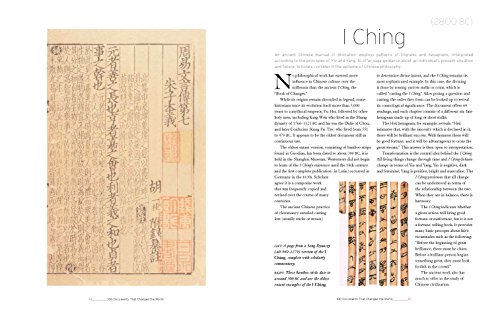 周易文言
胡
100 Documents That Changed the World
(2800 BC)
I Ching
An ancient Chinese manual of divination employs patterns of trigrams and hexagrams, interpreted
according to the principles of Yin and Yang, to offer suggestions about an individual's present situation
and future. Scholars consider it the epitome of Chinese philosophy.
No philosophical work has exerted more
influence in Chinese culture over the
millennia than the ancient I Ching, the
"Book of Changes."
While its origins remain shrouded in legend, some
historians trace its evolution back more than 5,000
years to a mythical emperor, Fu Hsi, followed by other
holy men, including King Wên who lived in the Shang
dynasty of 1766–1121 BC and his son the Duke of Chou,
and later Confucius (Kung Fu Tze) who lived from 551
to 479 BC. It appears to be the oldest document still in
continuous use.
The oldest extant version, consisting of bamboo strips
found in Guodian, has been dated to about 300 BC; it is
held in the Shanghai Museum. Westerners did not begin
to learn of the I Ching's existence until the 17th century
and the first complete publication (in Latin) occurred in
Germany in the 1830s. Scholars
agree it is a composite work
that was frequently copied and
revised over the course of many
centuries.
The ancient Chinese practice
of cleromancy entailed casting
lots (usually sticks or straw)
to determine divine intent, and the I Ching remains its
most sophisticated example. In this case, the divining
is done by tossing yarrow stalks or coins, which is
called "casting the I Ching." After posing a question and
casting, the order they form can be looked up to reveal
its cosmological significance. The document offers 64
readings, and each chapter consists of a different six-line
hexagram made up of long or short stalks.
The Hsü hexagram, for example, reveals: "Hsü
intimates that, with the sincerity which is declared in it,
there will be brilliant success. With firmness there will
be good fortune; and it will be advantageous to cross the
great stream." This answer is then open to interpretation.
Transformation is the central idea behind the I Ching.
All living things change through time and I Ching defines
change in terms of Yin and Yang. Yin is negative, dark
and feminine, Yang is positive, bright and masculine. The
I Ching professes that all change
can be understood in terms of
the relationship between the two.
When they are in balance, there is
harmony.
The I Ching indicates whether
a given action will bring good
fortune or misfortune, but it is not
a fortune-telling book. It provides
many basic precepts about life's
vicissitudes such as the following:
"Before the beginning of great
brilliance, there must be chaos.
Before a brilliant person begins
something great, they must look
foolish in the crowd."
The ancient work also has
much to offer in the study of
Chinese civilization.
LEFT: A page from a Song Dynasty
(AD 960–1279) version of the I
Ching, complete with scholarly
commentary.
RIGHT: These bamboo slips date to
around 300 BC and are the oldest
extant examples of the I Ching.
100 Documents That Changed the World